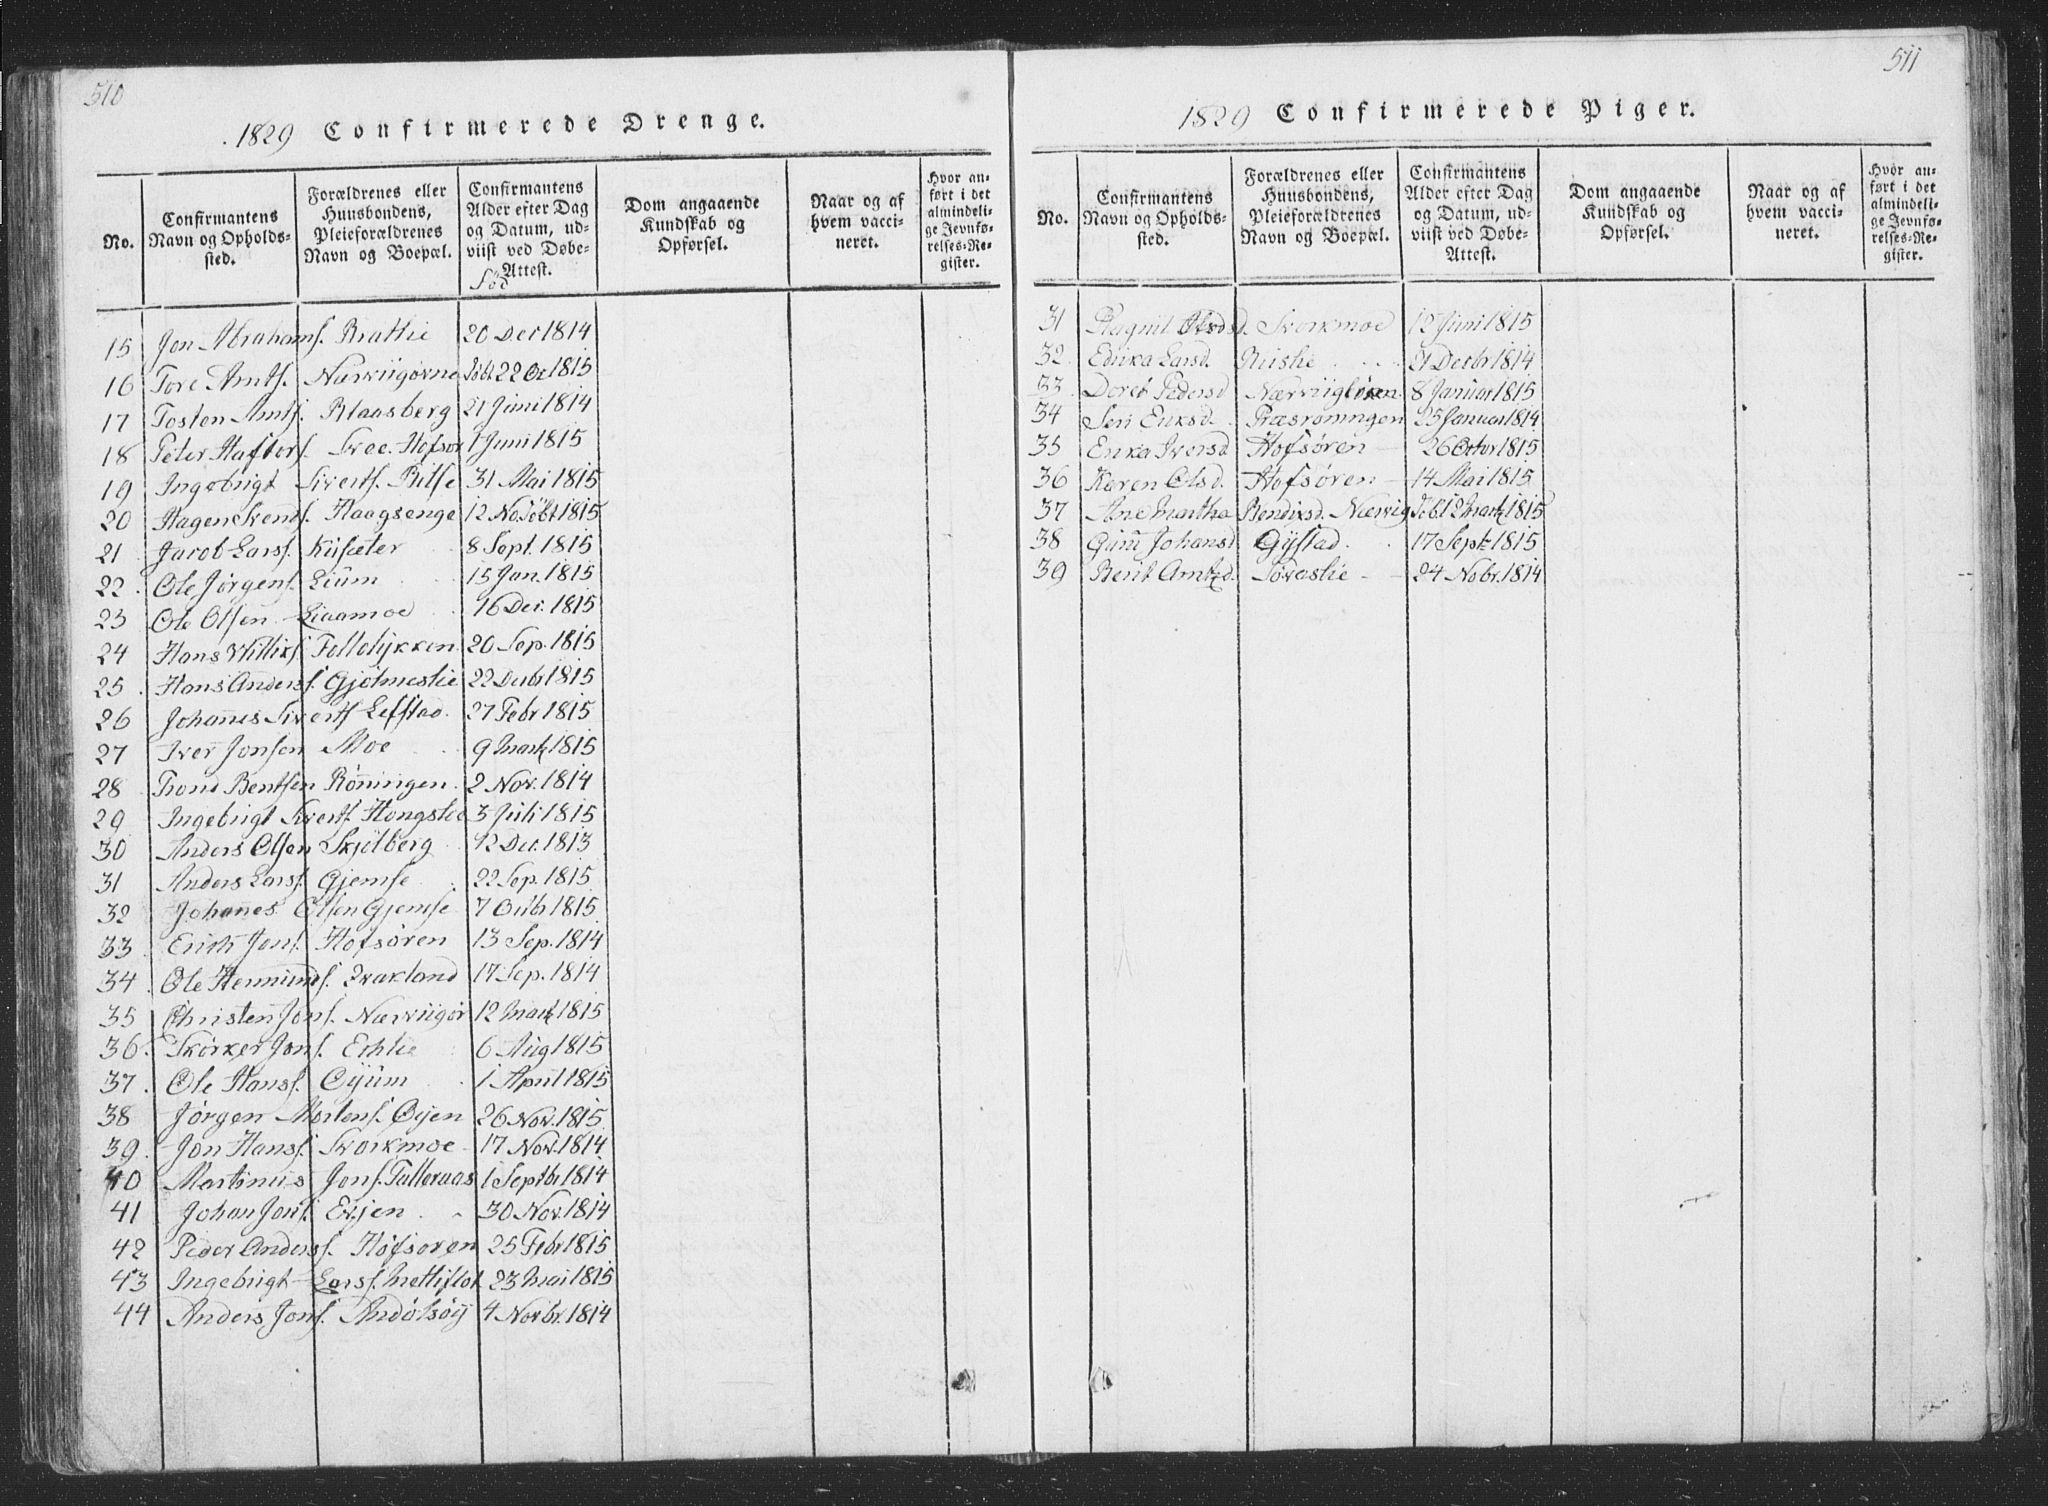 510
1829 Confirmerede Drenge.
No.
Confirmantens Navn og Opholds-sted.
Forældrenes eller Huusbondens, Pleieforældrenes Navn og Boepæl.
Confirmantens Alder efter Dag og Datum, ud-viist ved Døbe-Attest.
Dom angaaende Kundskab og Opførsel.
Naar og af hvem vacci-neret.
Hvor an-ført i det almindeli-ge Jevnfø-relses-Re-gister.
15 Jon Abrahams. Brattlie 20 Dec 1814
16 Tore Arnts. Nærviigørne Døbt 22 Oc 1815
17 Tosten Arnts. Blaasberg 21 Juni 1814
18 Peter Haftors. Hofsør 1 Juni 1815
19 Ingebrigt Siverts. 31 Mai 1815
20 Hagen Svends. Haagsenge 12 No Døbt 1815
21. Jacob Larss. Kusæter 8 Sept. 1815
22. Ole Jørgens. Lium 15 Jan. 1815
23 Ole Olsen Liaamoe 16 Dec. 1815
24 Hans 20 Sep. 1815
25. Hans Anders. Gjølmeslie 22 1815
26 Johannes Siverts. Lefstad 27 Febr 1815
27 Iver Jonsen Moe 9 Marts 1815
28 Trond Bentsen Rønningen 2 Nov. 1814
29 Ingebrigt Siverts. Hongslie 3 Juli 1815
30 Anders Olsen Skjølberg 12 Dec. 1813
31 Anders Larss. Gjemse 22 Sep. 1815
32 Johannes Olsen Gjemse 7 Octb 1815
33 Erich Jons. Hofsøren 13 Sep. 1814
34 Ole 17 Sep. 1814
35 Christen Jons. Nærviigør 12 Marts 1815
36. Skørker Jons. Echlie 6 Aug 1815
37. Ole Hans. Oyum 1 April 1815
38 Jørgen Mortens. Oyen 26 Nov. 1815
39. Jon Hans. Svorkmoe 17 Nov. 1814
40 Martinus Jons. Tulleraas 1 Septb 1814
41 Johan Jons. Evjen 30 Nov. 1814
42 Peder Anders. Hofsøren 25 Febr 1815
43 Ingebrigt Larss. 23 Mai 1815
44 Anders Jons. Andølsøy 4 Novbr. 1814
511
1829 Confirmerede Piger.
No.
Confirmantens Navn og Opholds-sted.
Forældrenes eller Huusbondens, Pleieforældrenes Navn og Boepæl.
Confirmantens Alder efter Dag og Datum, ud-viist ved Døbe-Attest.
Dom angaaende Kundskab og Opførsel.
Naar og af hvem vacci-neret.
Hvor an-ført i det almindeli-ge Jevnfø-relses-Re-gister.
31 Svorkmoe 12 Juni 1815
32. Larsd. Rislie 21 Decbr 1814
33 Doret Pedersd 8 Januar 1815
34 Seri Eriksd. 25 Januar 1814
35 Erika Iversd Hofsøren 26 Octor 1815
36 Karen Olsd. Hofsøren 14 Mai 1815
37 Ane Martha Bendixd. Nærvig Døbt 12 Marts 1815
38 Johansd Gystad 17 Sept 1815
39 Berit Arntzd. 24 Nobr. 1814